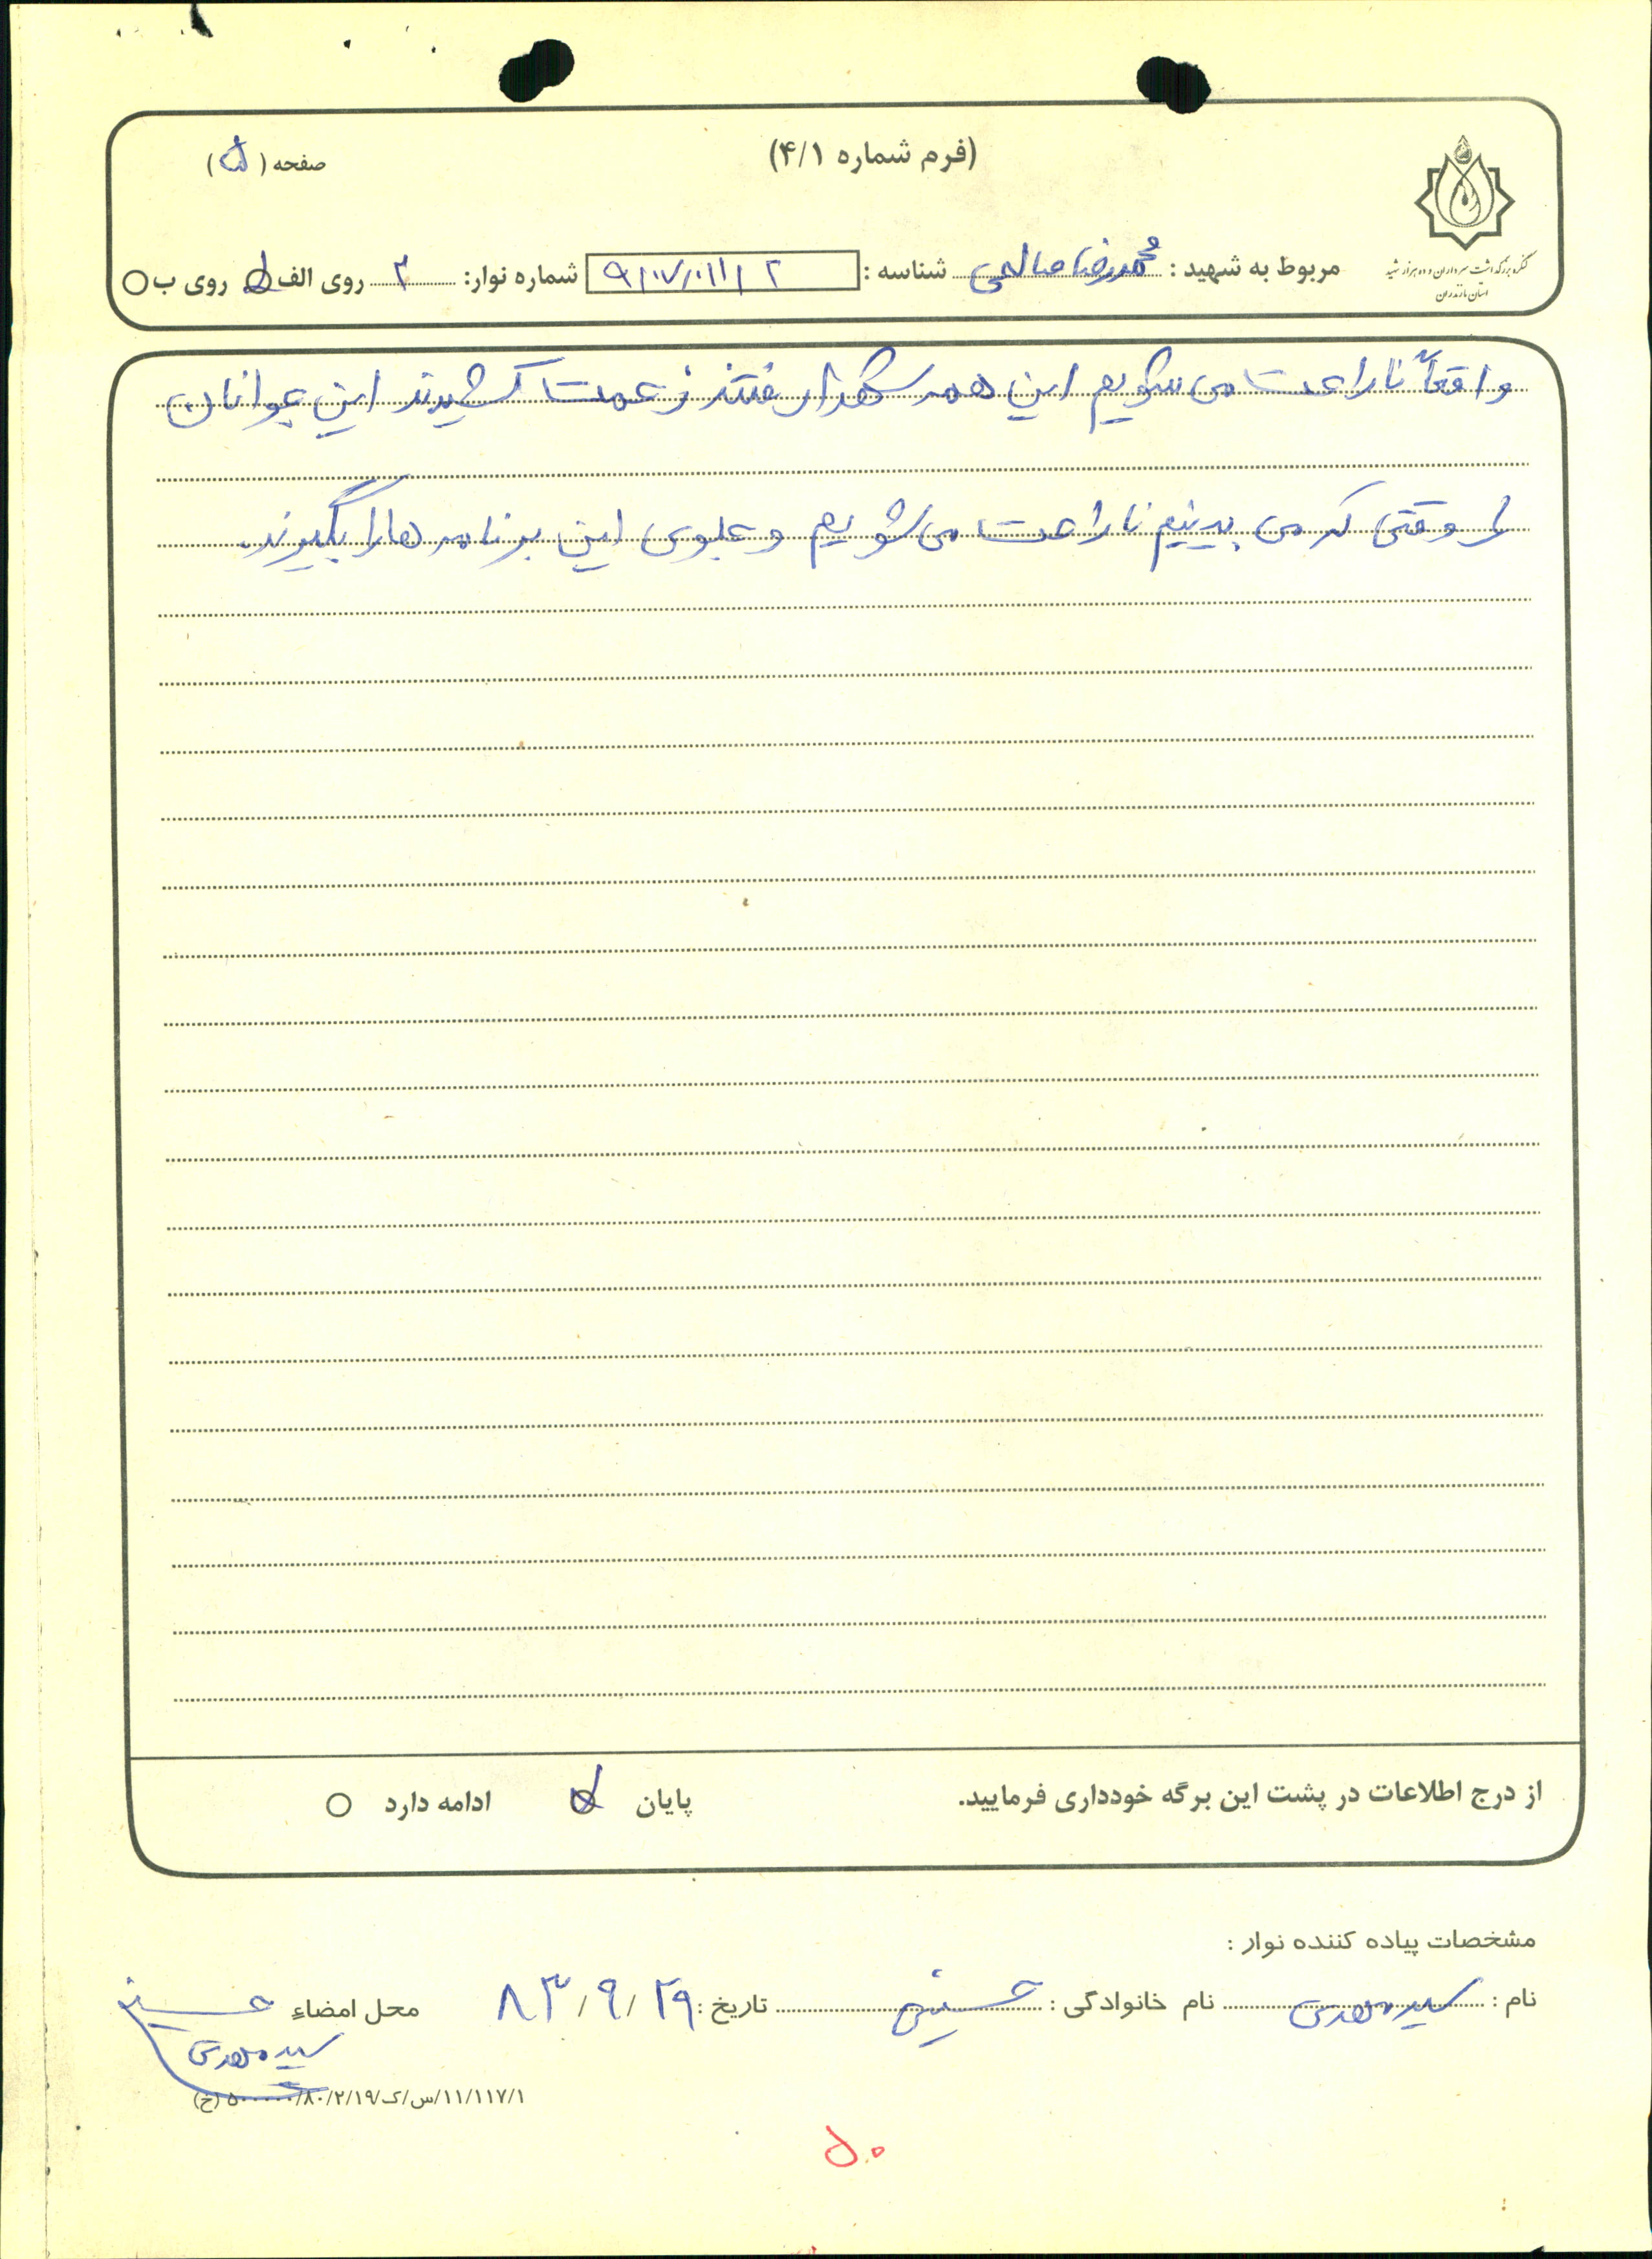 (فرم شماره ۴/۱)
صفحه (۵)
کنگره بزرگداشت سرداران و ده هزار شهید
استان مازندران
مربوط به شهید : محمدرضا صالحی شناسه : شماره نوار: ۲ روی الف روی ب
واقعاً ناراحت می شویم این همه شهدا رفتند زحمت کشیدند این جوانان
را وقتی که می بینیم ناراحت می شویم و جلوی این برنامه ها را بگیرند.
از درج اطلاعات در پشت این برگه خودداری فرمایید. پایان ادامه دارد
مشخصات پیاده کننده نوار :
نام : سید مهدی نام خانوادگی : حسینی تاریخ : ۸۳/۹/۲۹ محل امضاء حسینی
سید مهدی
۱۱/۱۱۷/۱/س/ک/۸۰/۲/۱۹ (خ)
۵۰